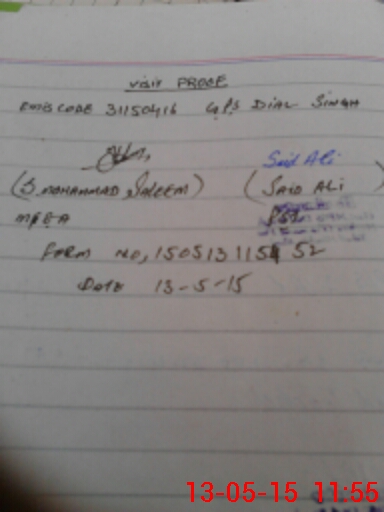 VISIT PROOF
EMIS CODE 31150416 G.P.S DIAL SINGH
Said Ali
(S. MOHAMMAD SALEEM) (SAID ALI)
MP&A PST
FORM NO, 150513115452
Date 13-5-15
13-05-15 11:55